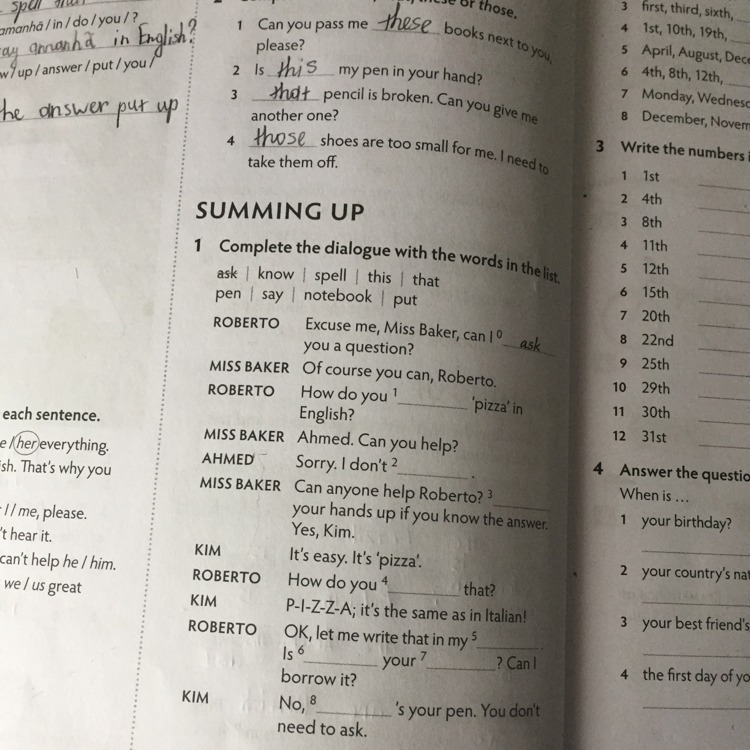 spell the
amanhã / in / do / you / ?
ay amanhã in English?
w / up / answer / put / you /
he answer put up
each sentence.
e / her everything.
ish. That's why you
I / me, please.
't hear it.
can't help he / him.
we / us great
these or those.
1 Can you pass me these books next to you,
please?
2 Is this my pen in your hand?
3 that pencil is broken. Can you give me
another one?
4 those shoes are too small for me. I need to
take them off.
SUMMING UP
1 Complete the dialogue with the words in the list.
ask | know | spell | this | that
pen | say | notebook | put
ROBERTO Excuse me, Miss Baker, can I 0 ask
you a question?
MISS BAKER Of course you can, Roberto.
ROBERTO How do you 1 ________ 'pizza' in
English?
MISS BAKER Ahmed. Can you help?
AHMED Sorry. I don't 2 ________ .
MISS BAKER Can anyone help Roberto? 3 ________
your hands up if you know the answer.
Yes, Kim.
KIM It's easy. It's 'pizza'.
ROBERTO How do you 4 ________ that?
KIM P-I-Z-Z-A; it's the same as in Italian!
ROBERTO OK, let me write that in my 5 ________ .
Is 6 ________ your 7 ________ ? Can I
borrow it?
KIM No, 8 ________ 's your pen. You don't
need to ask.
3 first, third, sixth,
4 1st, 10th, 19th,
5 April, August, Dece
6 4th, 8th, 12th,
7 Monday, Wednesd
8 December, Novem
3 Write the numbers i
1 1st
2 4th
3 8th
4 11th
5 12th
6 15th
7 20th
8 22nd
9 25th
10 29th
11 30th
12 31st
4 Answer the questio
When is ...
1 your birthday?
2 your country's nat
3 your best friend's
4 the first day of yo